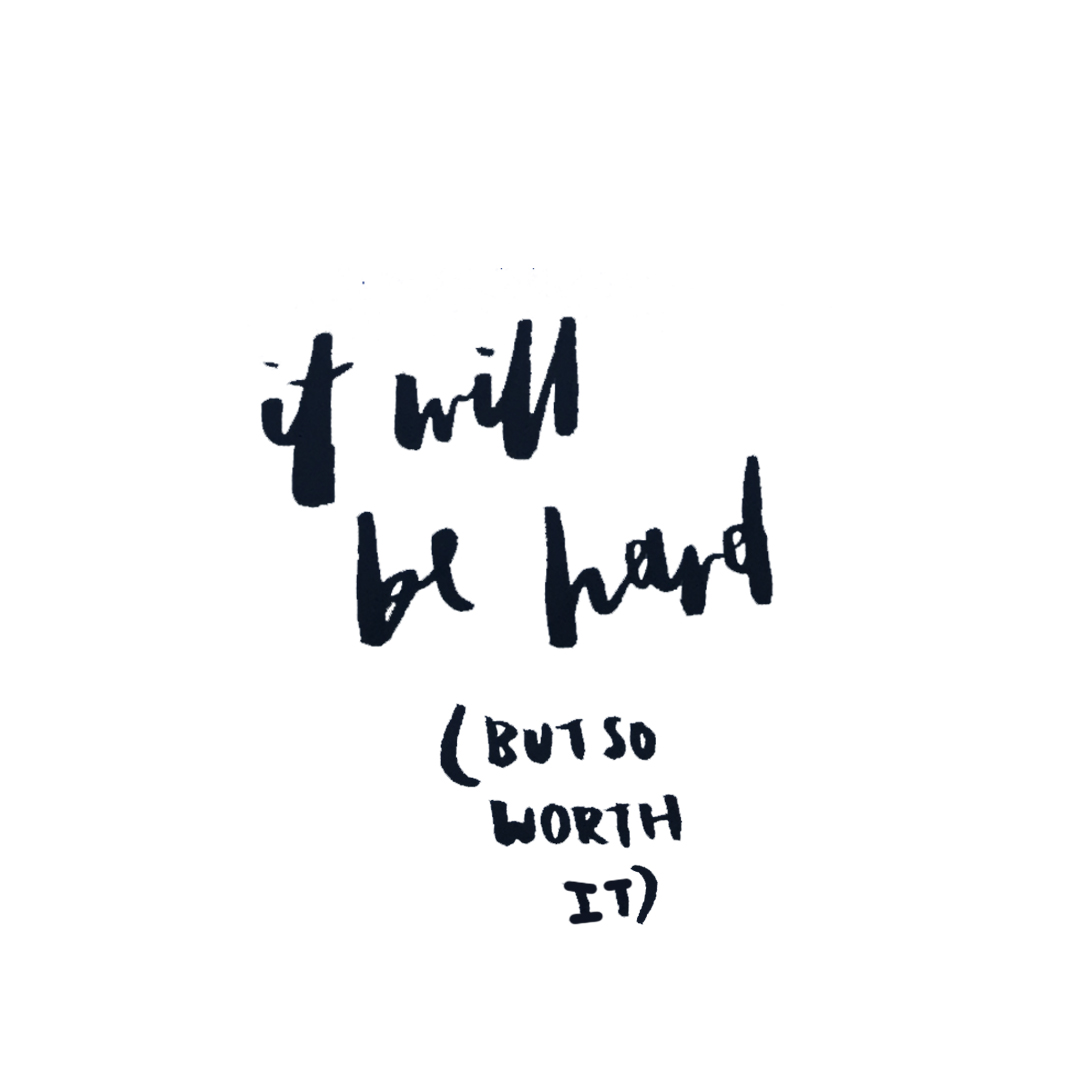 it will
be hard
(BUT SO
WORTH
IT)